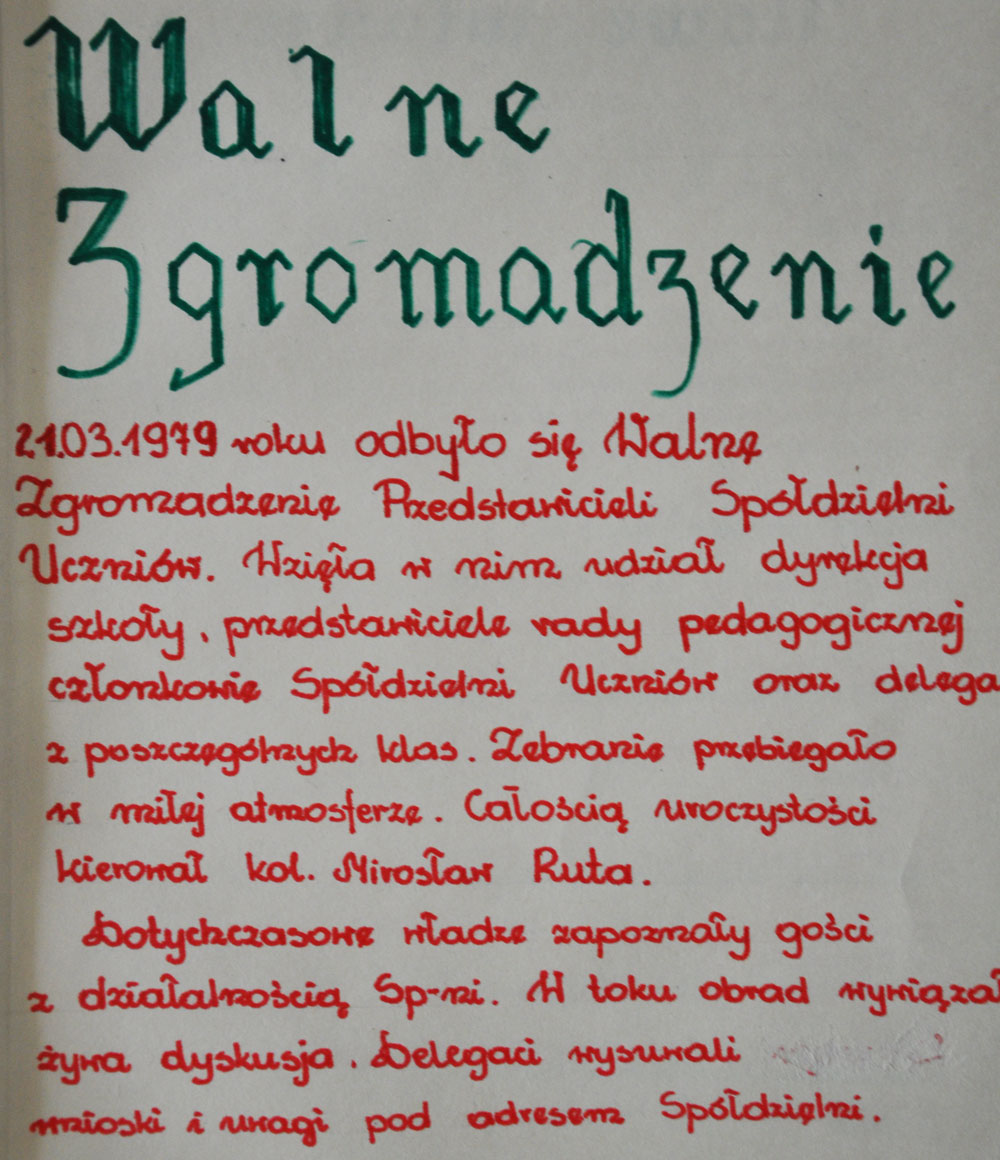 Walne
Zgromadzenie
21.03.1979 roku odbyło się Walne
Zgromadzenie Przedstawicieli Spółdzielni
Uczniów. Wzięła w nim udział dyrekcja
szkoły, przedstawiciele rady pedagogicznej
członkowie Spółdzielni Uczniów oraz delega
z poszczególnych klas. Zebranie przebiegało
w miłej atmosferze. Całością uroczystości
kierował kol. Mirosław Ruta.
Dotychczasowe władze zapoznały gości
z działalnością Sp-ni. W toku obrad wywiązał
żywa dyskusja. Delegaci wysuwali
wnioski i uwagi pod adresem Spółdzielni.